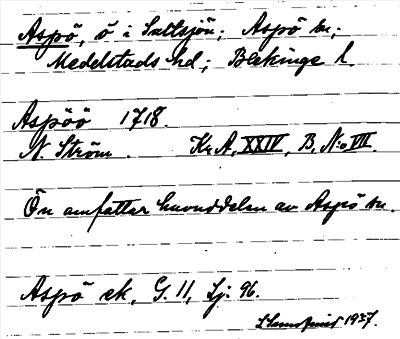 Aspö, ö i Saltsjön; Aspö sn.;
Medelstads hd; Blekinge l.
Aspöö 1718.
N. Ström. Kr. A, XXIV, B, N:o VIII.
Ön omfattar huvuddelen av Aspö sn.
Aspö ek. G. 11, Lj. 96.
1937.